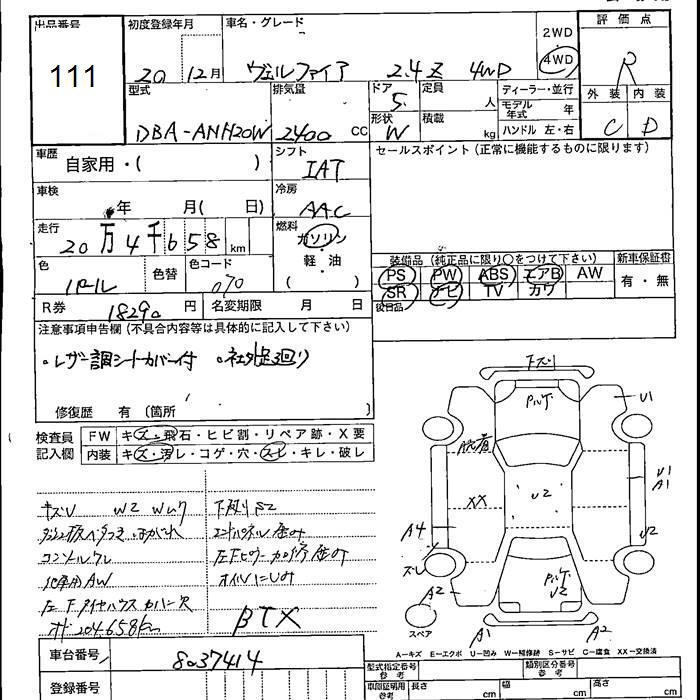 出品番号
111
初度登録年月
20 12月
車名・グレード
ヴェルファイア 2.4Z 4WD
2WD
4WD
評価点
R
外装 内装
C D
型式
DBA-ANH20W
排気量
2400 CC
ドア
5
形状
W
定員
人
積載
kg
ディーラー・並行
モデル年式 年
ハンドル 左・右
車歴
自家用・( )
シフト
IAT
セールスポイント(正常に機能するものに限ります)
車検
年 月( 日)
冷房
AAC
走行
20万4千658 km
燃料
ガソリン
軽・油
( )
色
パール
色替
色コード
070
装備品(純正品に限り○をつけて下さい)
PS PW ABS エアB AW
SR ナビ TV カワ
後日品
新車保証書
有・無
R券
18290 円
名変期限 月 日
注意事項申告欄(不具合内容等は具体的に記入して下さい)
・レザー調シートカバー付 ・社外足廻り
修復歴 有(箇所 )
検査員
記入欄
FW キズ・飛石・ヒビ割・リペア跡・X要
内装 キズ・汚レ・コゲ・穴・スレ・キレ・破レ
キズU W2 Wムラ
下廻りS2
コンソールワレ
社外AW
左Fタイヤハウスカバー欠
オイルにじみ
メーター204.658km
BTX
下ズリ
U1
脱着
XX
U2
U1
A1
A4
U2
ズレ
A2
U2
スペア
A1
A2
A-キズ E-エクボ U-凹み W-補修跡 S-サビ C-腐食 XX-交換済
車台番号
8037414
登録番号
型式指定番号
参考
類別区分番号
参考
車両証明用
参考
長さ cm
幅 cm
高さ cm